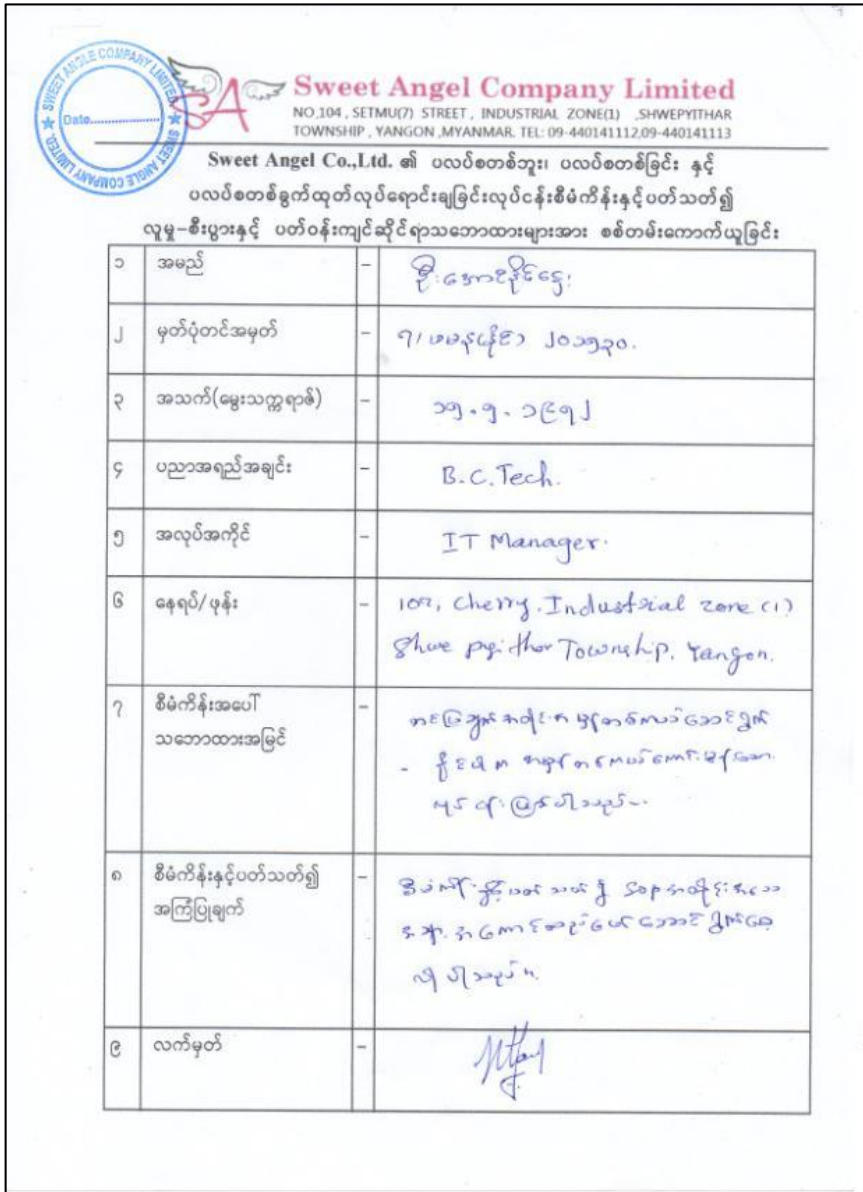 SWEET ANGLE COMPANY LIMITED
SWEET ANGLE COMPANY LIMITED.
Date
SA
Sweet Angel Company Limited
NO,104 , SETMU(7) STREET , INDUSTRIAL ZONE(1) ,SHWEPYITHAR
TOWNSHIP , YANGON ,MYANMAR. TEL: 09-440141112,09-440141113
Sweet Angel Co.,Ltd. ၏ ပလပ်စတစ်ဘူး၊ ပလပ်စတစ်ခြင်း နှင့်
ပလပ်စတစ်ခွက်ထုတ်လုပ်ရောင်းချခြင်းလုပ်ငန်းစီမံကိန်းနှင့်ပတ်သတ်၍
လူမှု-စီးပွားနှင့် ပတ်ဝန်းကျင်ဆိုင်ရာသဘောထားများအား စစ်တမ်းကောက်ယူခြင်း
၁ အမည် - ဦး
၂ မှတ်ပုံတင်အမှတ် - ၇/ ၂၀၁၅၃၀.
၃ အသက်(မွေးသက္ကရာဇ်) -
၄ ပညာအရည်အချင်း - B.C.Tech.
၅ အလုပ်အကိုင် - IT Manager.
၆ နေရပ်/ဖုန်း - Cherry, Industrial zone (1)
Township, Yangon.
၇ စီမံကိန်းအပေါ် -
သဘောထားအမြင်
လုပ်ငန်းဖြစ်ပါသည်။
၈ စီမံကိန်းနှင့်ပတ်သတ်၍ - စီမံကိန်းနှင့်ပတ်သတ်၍ SOP အတိုင်း
အကြံပြုချက် အကောင်အထည်ဖော်ဆောင်ရွက်စေ
လိုပါသည်။
၉ လက်မှတ် -